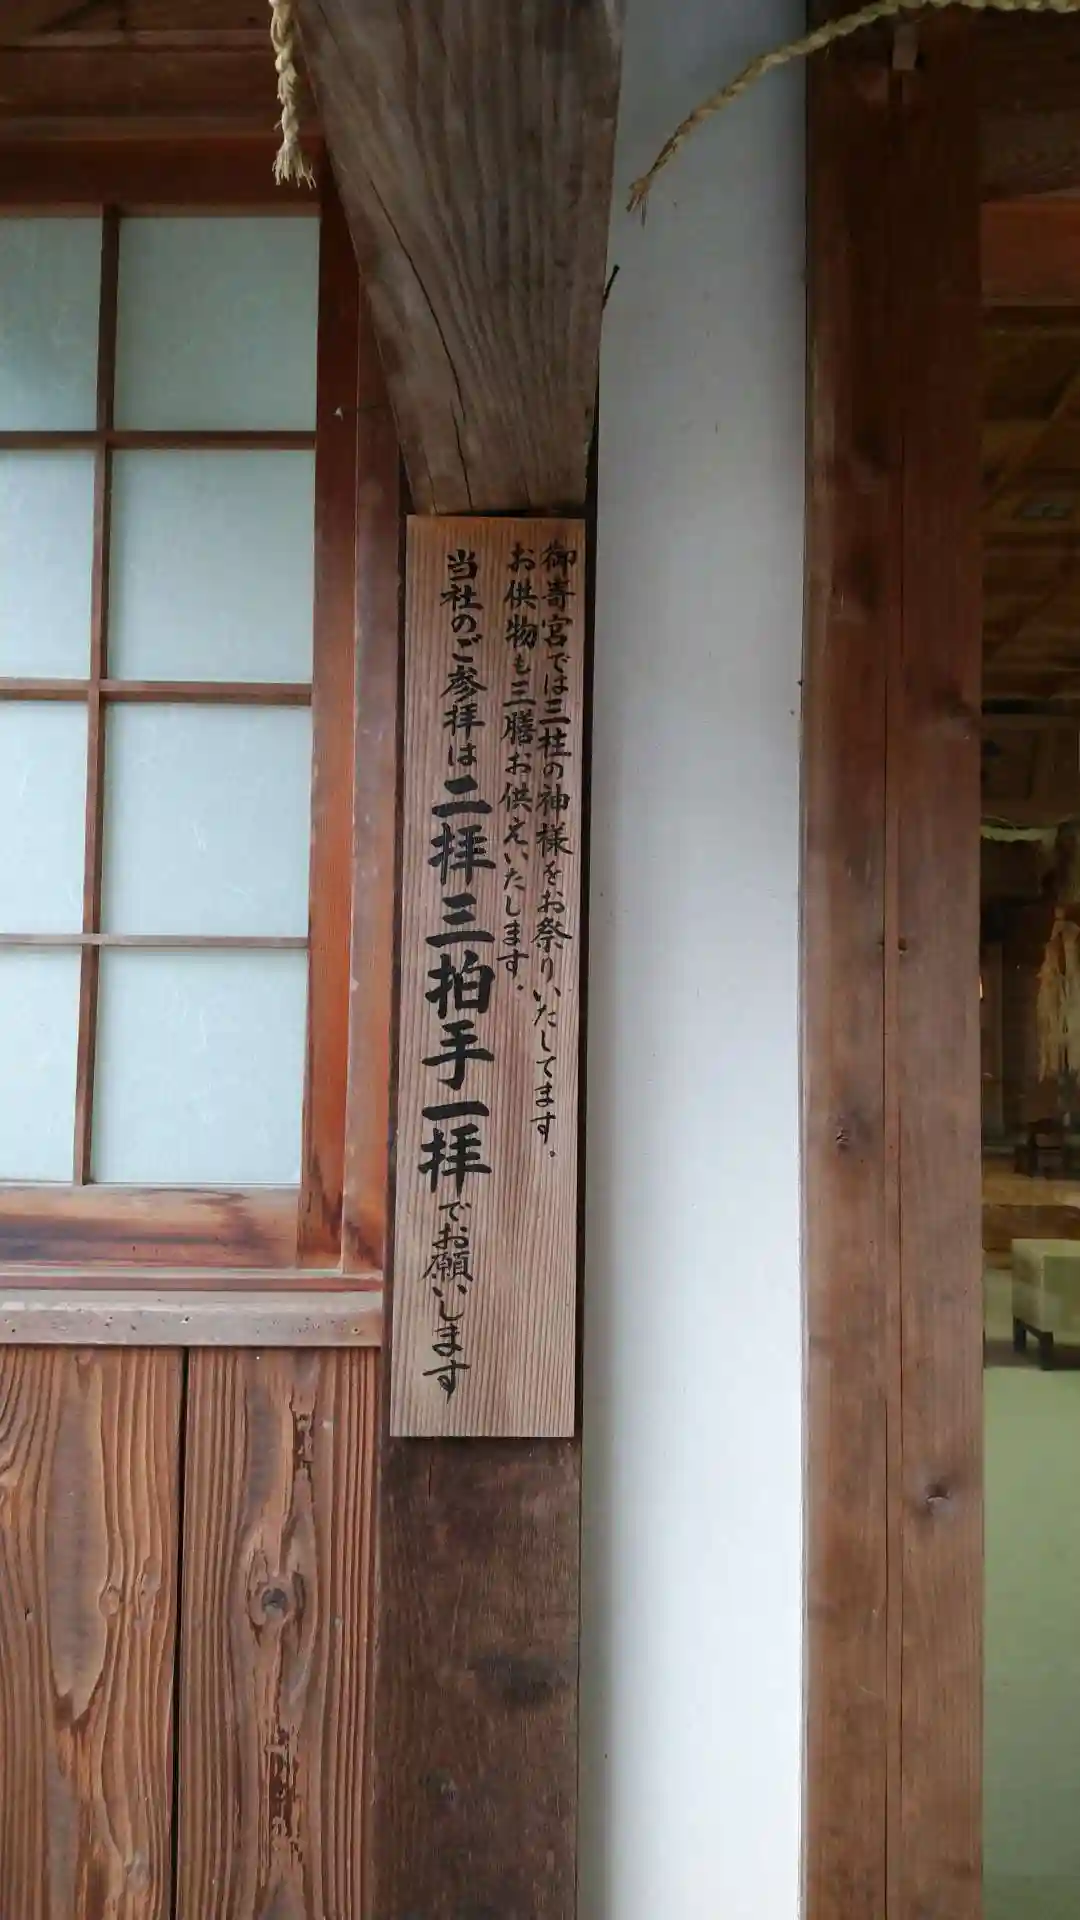 御寄宮では三柱の神様をお祭りいたしてます.
お供物も三膳お供えいたします.
当社のご参拝は二拝三拍手一拝でお願いします